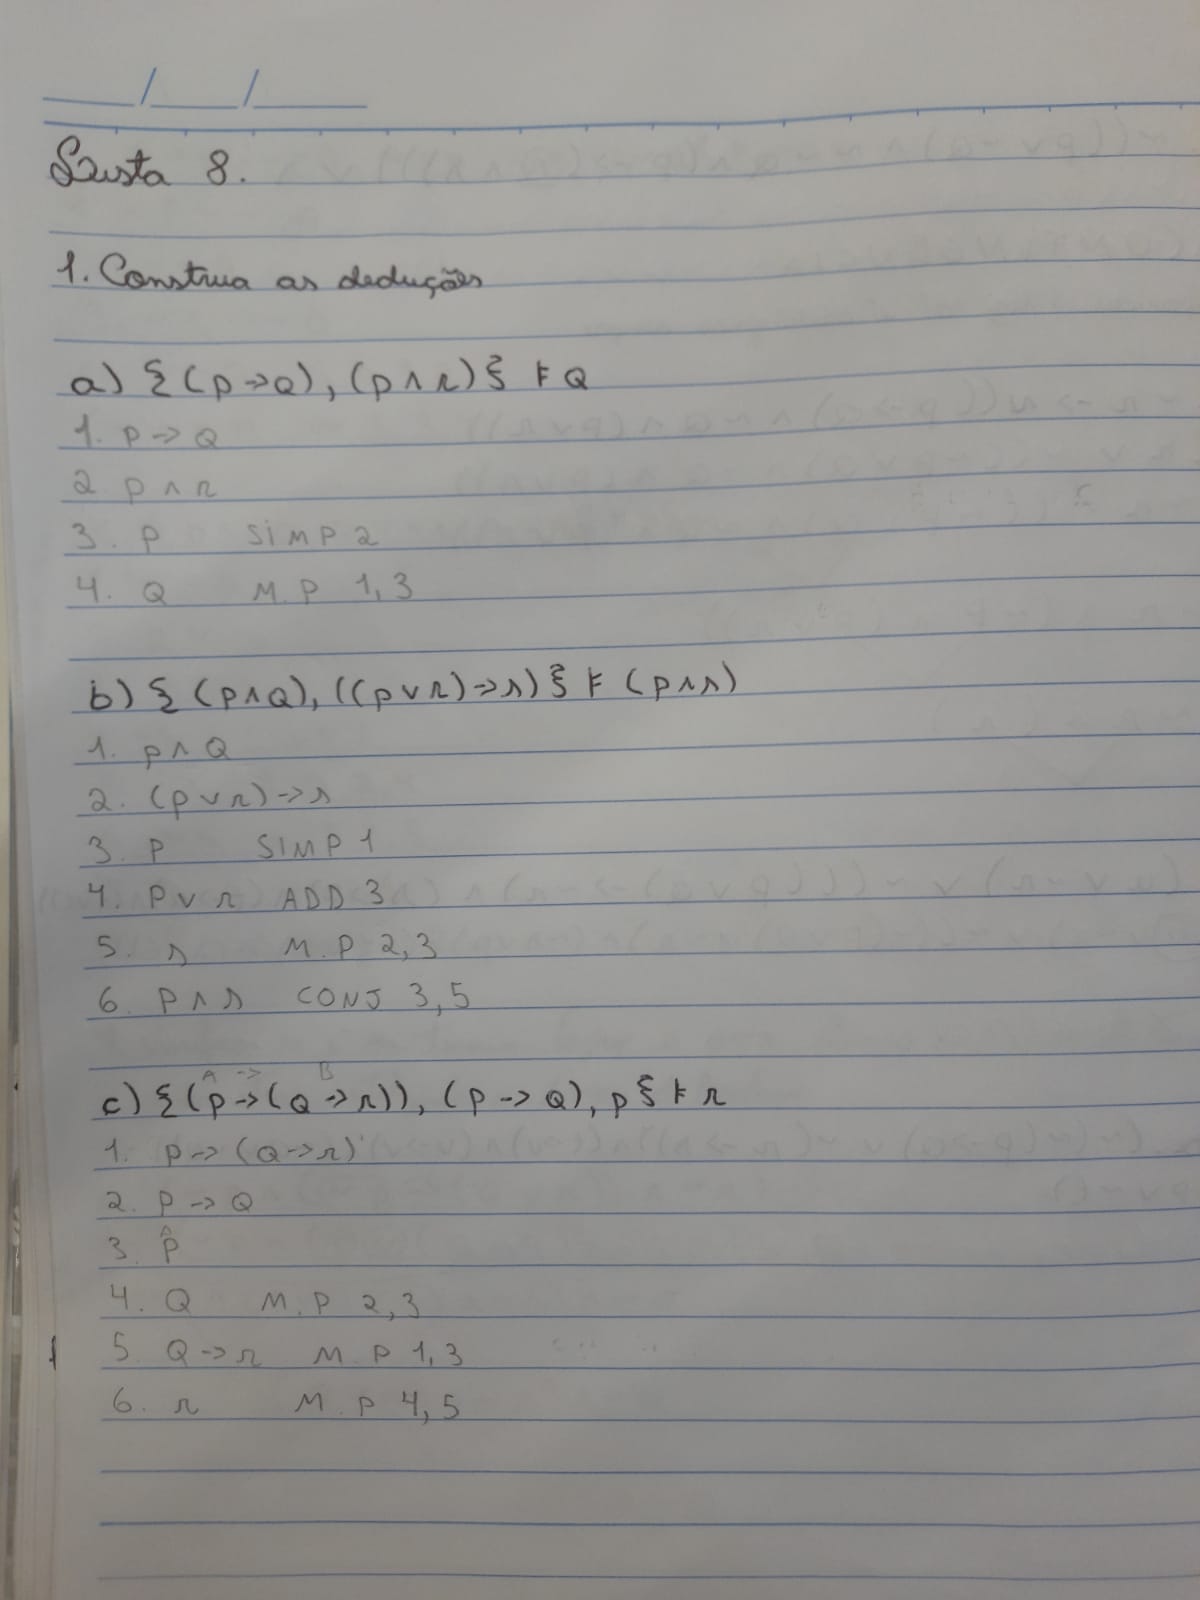 Lista 8.
1. Construa as deduções
a) {(p->Q), (p∧r)} ⊧ Q
1. P->Q
2 p∧r
3. P SIMP 2
4. Q M.P 1,3
b) {(p∧Q), ((p∨r)->s)} ⊧ (p∧s)
1. p∧Q
2. (p∨r)->s
3. P SIMP 1
4. P∨r ADD 3
5. s M.P 2,3
6. P∧s CONJ 3,5
A -> B
c) {(p->(Q->r)), (p->Q), p} ⊧ r
1. p->(Q->r)
2. P->Q
A
3. P
4. Q M.P 2,3
5. Q->r M.P 1,3
6. r M.P 4,5